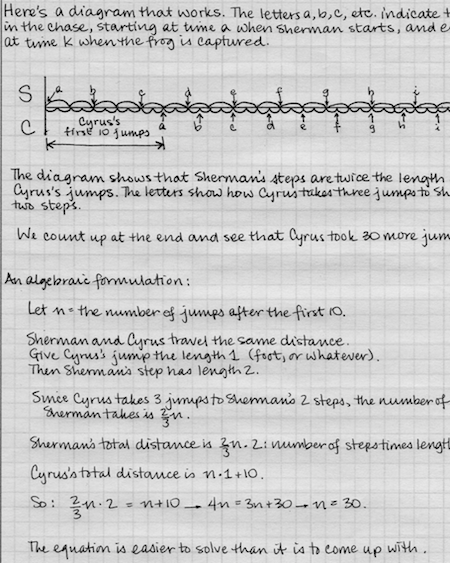 Here's a diagram that works. The letters a, b, c, etc. indicate
in the chase, starting at time a when Sherman starts, and
at time k when the frog is captured.
S
a b c d e f g h i
C
Cyrus's
first 10 jumps
a b c d e f g h i
The diagram shows that Sherman's steps are twice the length
Cyrus's jumps. The letters show how Cyrus takes three jumps to
two steps.
We count up at the end and see that Cyrus took 30 more
An algebraic formulation:
Let n = the number of jumps after the first 10.
Sherman and Cyrus travel the same distance.
Give Cyrus's jump the length 1 (foot, or whatever).
Then Sherman's step has length 2.
Since Cyrus takes 3 jumps to Sherman's 2 steps, the number of
Sherman takes is 2/3 n.
Sherman's total distance is 2/3 n · 2: number of steps times
Cyrus's total distance is n · 1 + 10.
So: 2/3 n · 2 = n + 10 → 4n = 3n + 30 → n = 30.
The equation is easier to solve than it is to come up with.